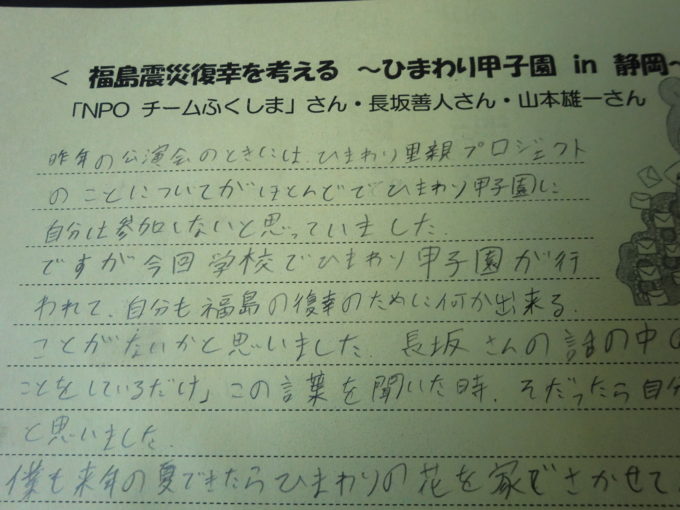 < 福島震災復幸を考える ～ひまわり甲子園 in 静岡～
「NPO チームふくしま」さん・長坂善人さん・山本雄一さん
昨年の公演会のときには、ひまわり里親プロジェクト
のことについてがほとんどで ひまわり甲子園に
自分は参加しないと思っていました。
ですが今回学校でひまわり甲子園が行
われて、自分も福島の復幸のために何か出来る
ことがないかと思いました。長坂さんの話の中の
ことをしているだけ」この言葉を聞いた時、そだったら自分
と思いました。
僕も来年の夏できたらひまわりの花を家でさかせて